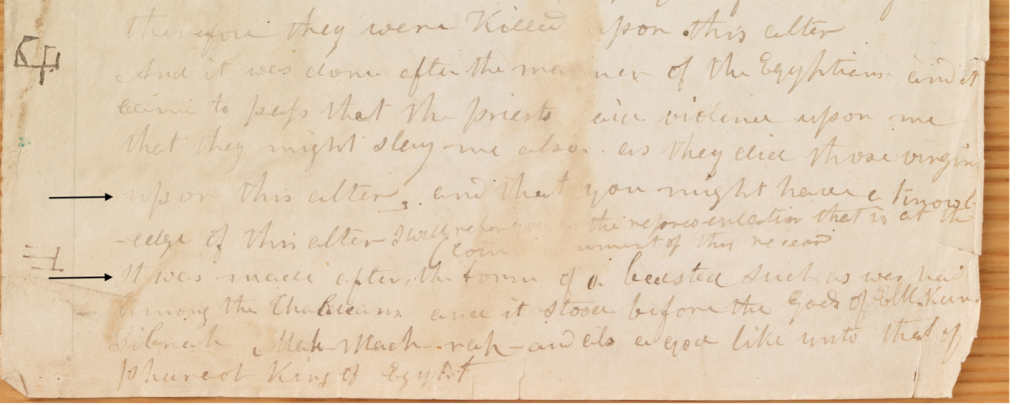 therefore they were Killed upon this alter
And it was done after the manner of the Egyptians and it
came to pass that the priests did violence upon me
that they might slay me also. as they did those virgins
upon this alter, and that you might have a knowl
-edge of this alter I will refer you to the representation that is at the
ment of this record
It was made after the form of a beasted such as was had
among the Chaldeans and it stood before the Gods of Elk-Kener
Zibnah Mah-Mach-rah - and als a god like unto that of
pharaoh King of Egypt